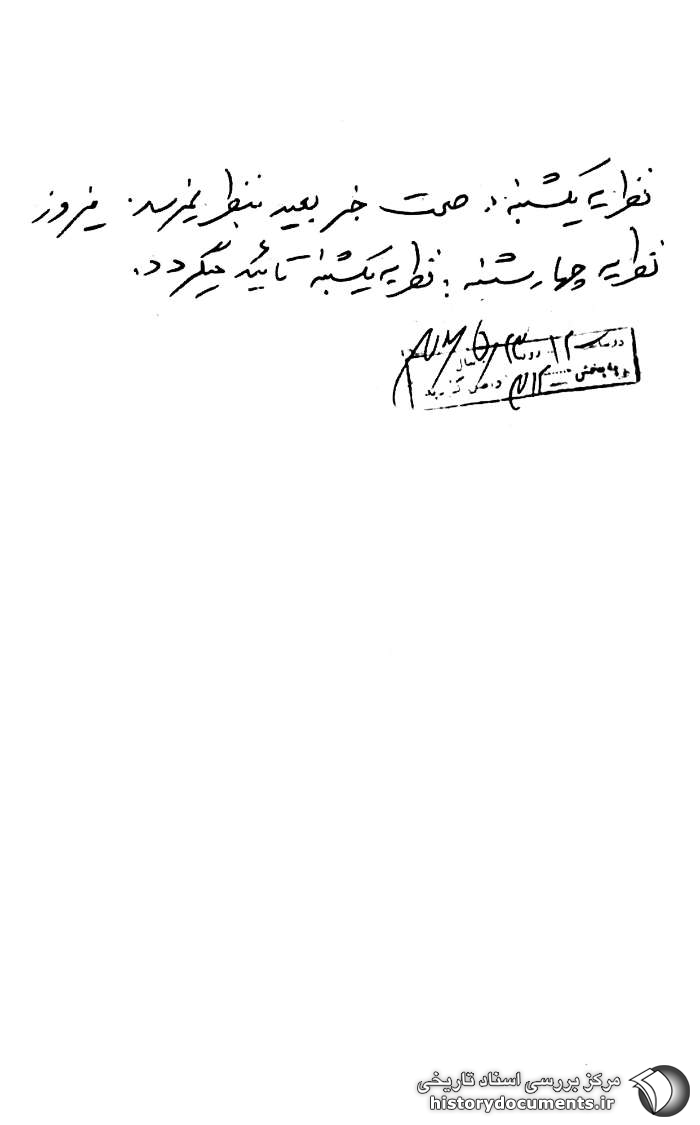 نظریه یکشنبه : صحت خبر بعید بنظر نمیرسد. فیروز
نظریه چهارشنبه : نظریه یکشنبه تائید میگردد.
به بخش
مرکز بررسی اسناد تاریخی
historydocuments.ir